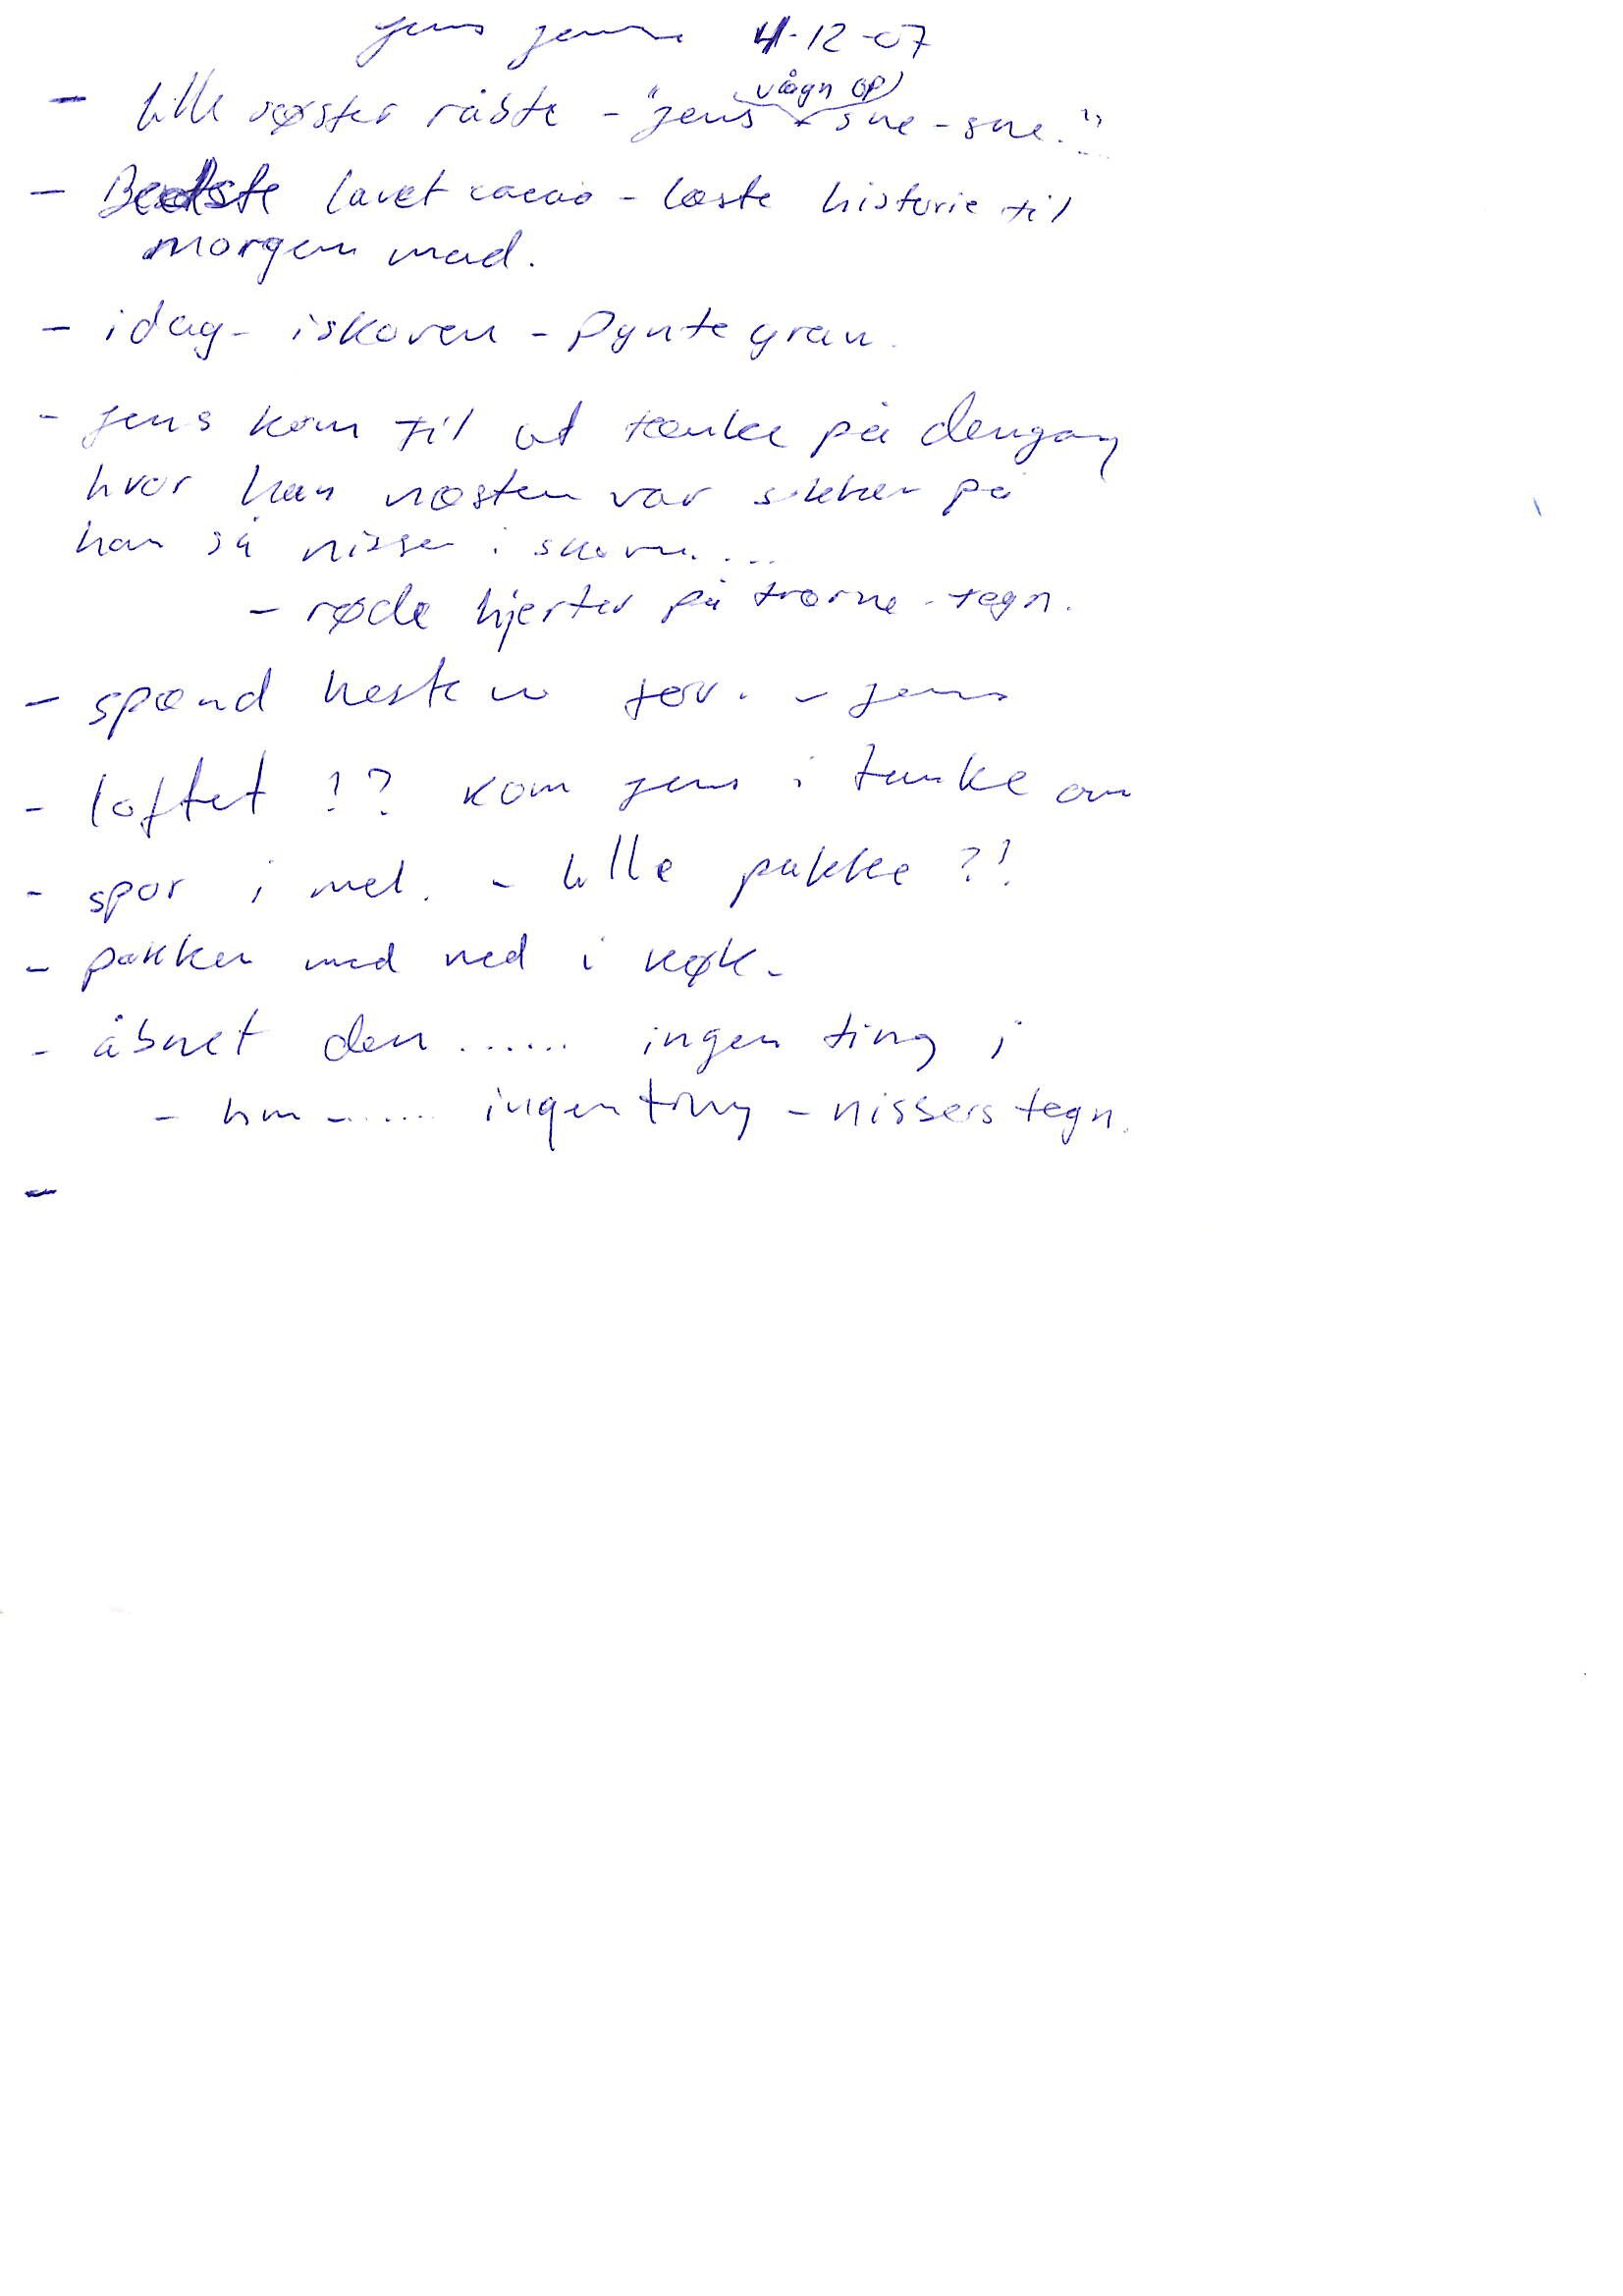 Jens Jensen 4-12-07
vågn op
- lille søster råbte - "Jens sne - sne."
- Bedste lavet cacao - læste historie til
morgen mad.
- idag - iskoven - Pynte gran.
- Jens kom til at tænke på dengang
hvor han næsten var sikker på
han så nisser i skoven....
- røde hjerter på træerne - tegn.
- spænd hesten for. - Jens
- loftet ?? kom Jens i tanke om
- spor i mel. - lille pakke ??
- pakken med ned i køk.
- åbnet den ...... ingen ting i
- hm - ..... ingen ting - nissers tegn.
-